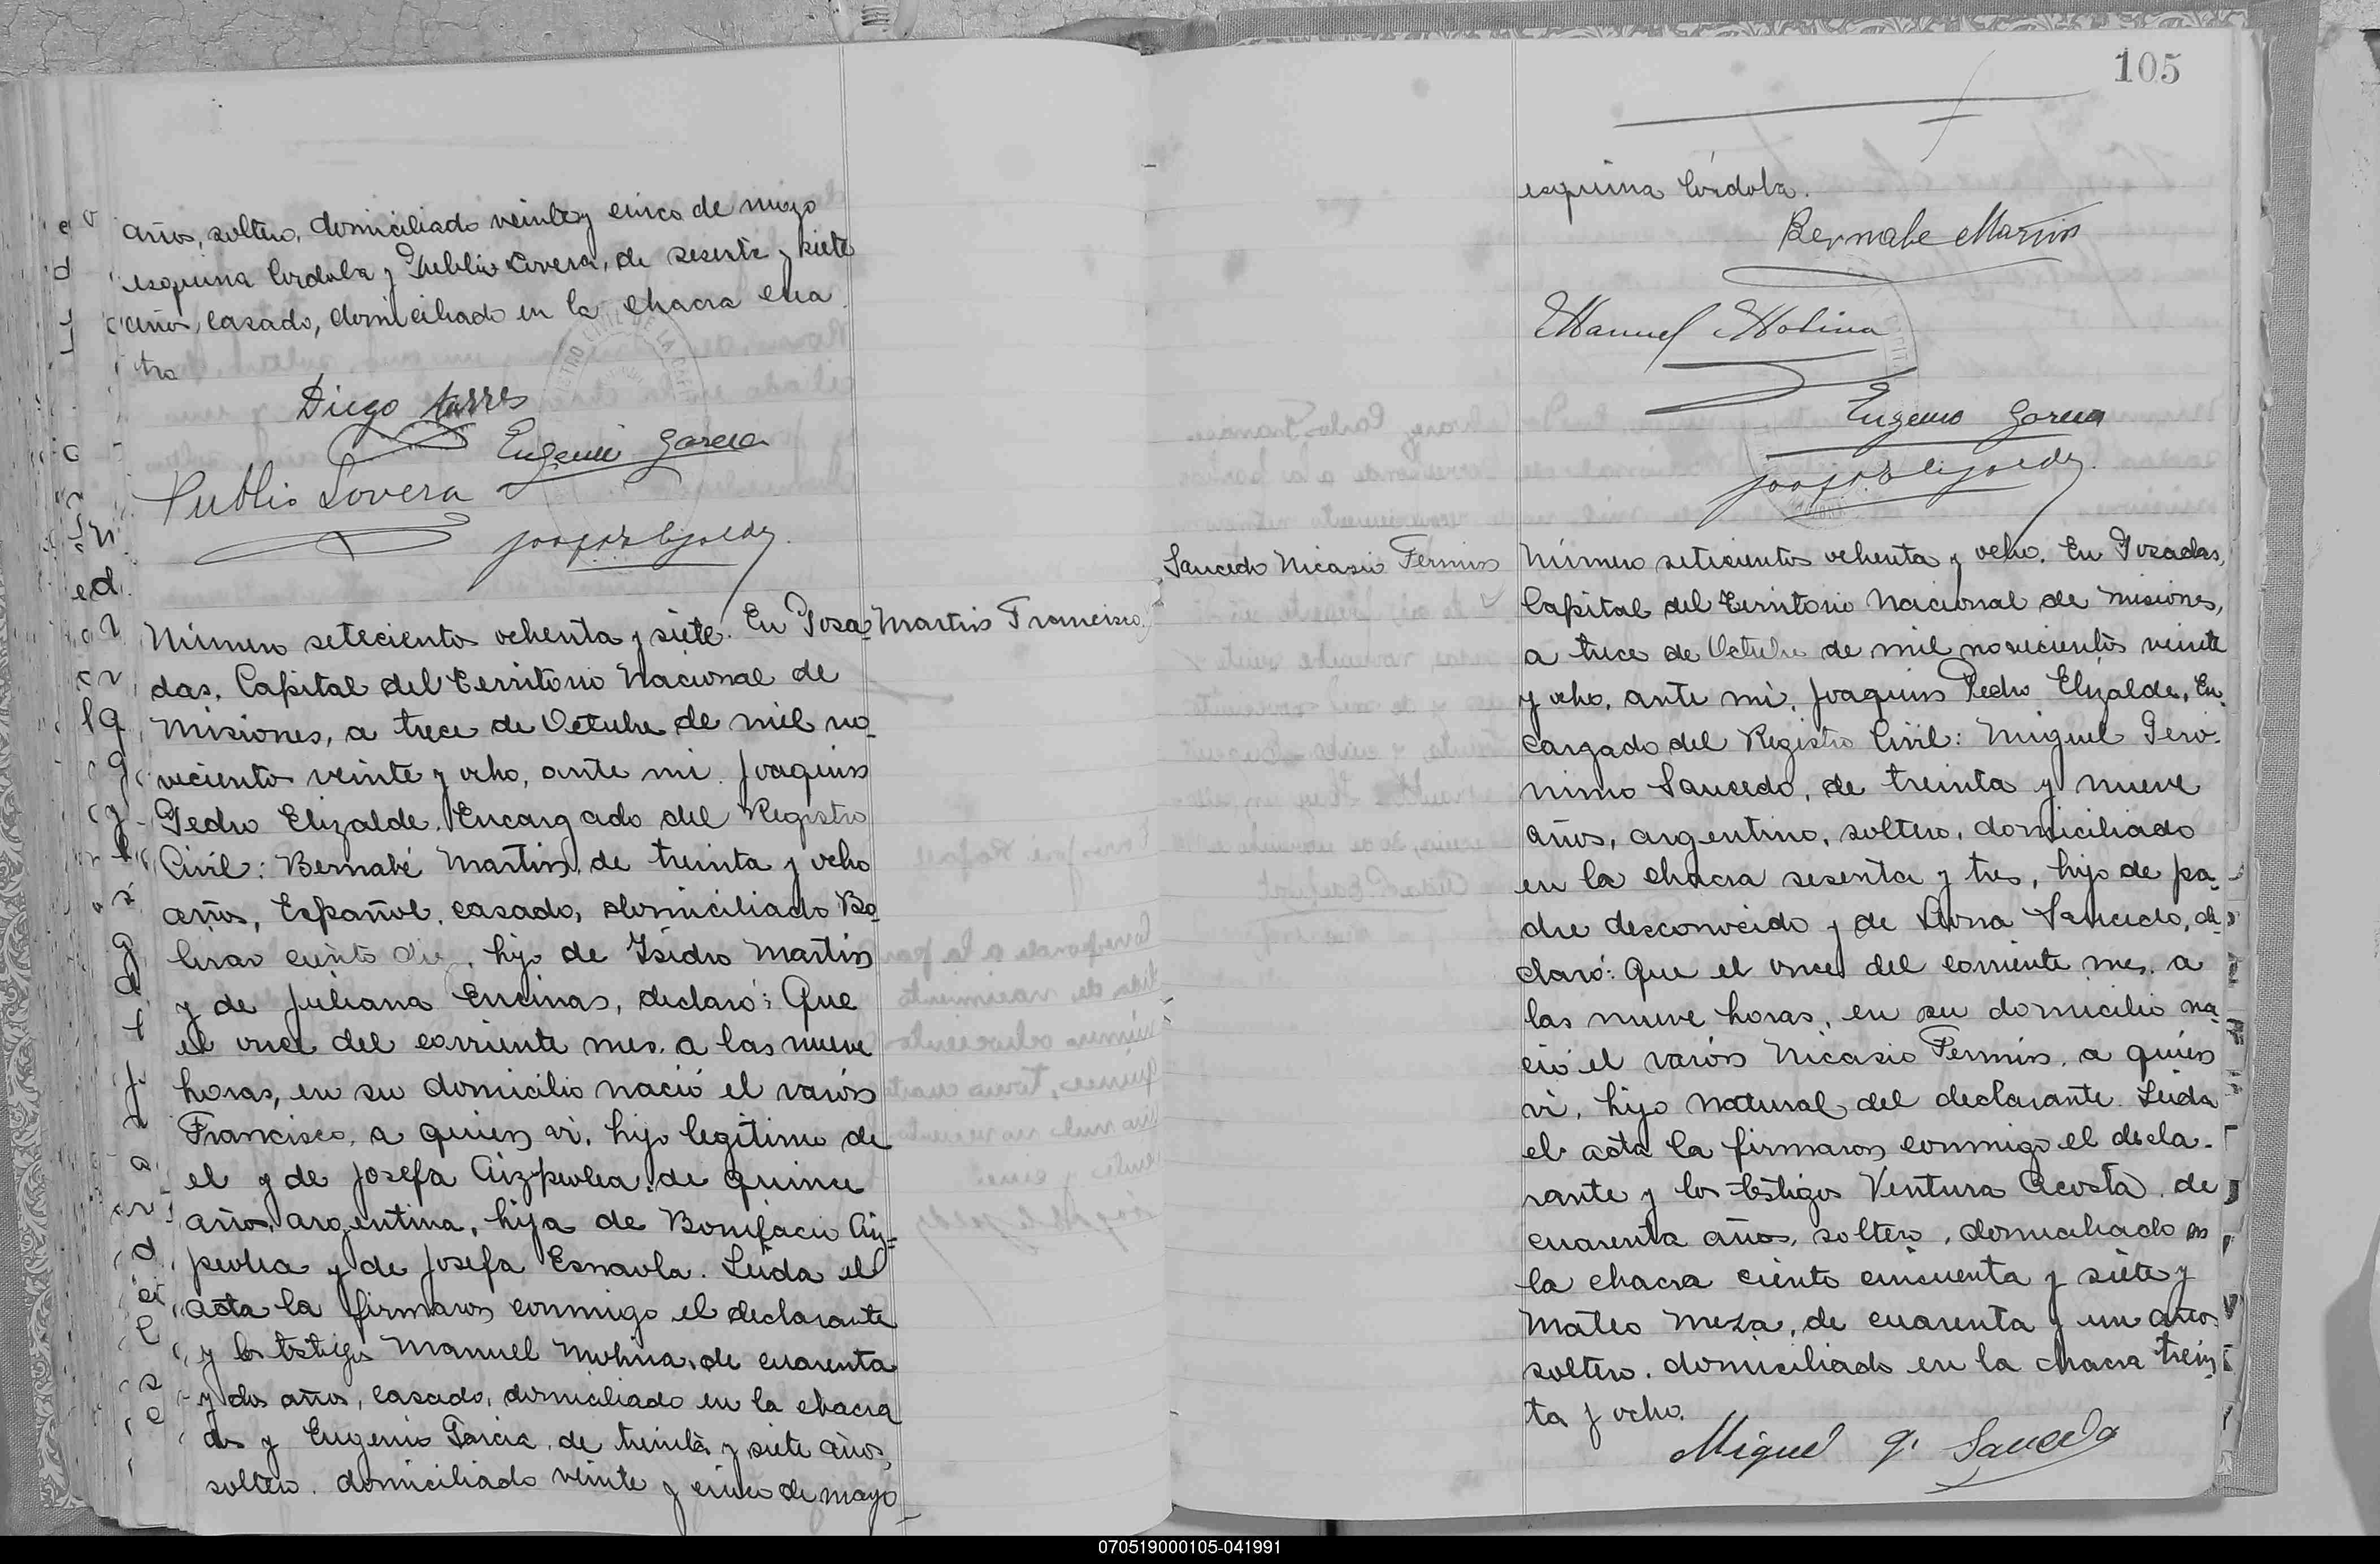 años, soltero, domiciliado veinte y cinco de mayo
esquina Córdoba y Publio Lovera, de sesenta y siete
años, casado, domiciliado en la chacra cua
tro
Diego Torres
Eugenio Garcia
Publio Lovera
Número setecientos ochenta y siete. En Posa-
Martin Francisco
das, Capital del Territorio Nacional de
Misiones, a trece de Octubre de mil no-
vecientos veinte y ocho, ante mi, Joaquin
Pedro Elizalde, Encargado del Registro
Civil: Bernabé Martin, de treinta y ocho
años, Español, casado, domiciliado Bo-
livar ciento diez, hijo de Isidro Martin
y de Juliana Encinas, declaró: Que
el once del corriente mes, a las nueve
horas, en su domicilio nació el varón
Francisco, a quien vi, hijo legítimo de
el y de Josefa Aizpeolea, de quince
años, argentina, hija de Bonifacio Aiz-
peolea y de Josefa Esnaola. Leida el
acta la firmaron conmigo el declarante
y los testigos Manuel Molina, de cuarenta
y dos años, casado, domiciliado en la chacra
dos y Eugenio Garcia, de treinta y siete años,
soltero, domiciliado veinte y cinco de mayo
105
esquina Córdoba.
Bernabe Martin
Manuel Molina
Eugenio Garcia
Saucedo Nicasio Fermin
Número setecientos ochenta y ocho. En Posadas,
Capital del Territorio Nacional de Misiones,
a trece de Octubre de mil novecientos veinte
y ocho, ante mi, Joaquin Pedro Elizalde, En-
cargado del Registro Civil: Miguel Gero-
nimo Saucedo, de treinta y nueve
años, argentino, soltero, domiciliado
en la chacra sesenta y tres, hijo de pa-
dre desconocido y de Saucedo, de-
claró: Que el once del corriente mes, a
las nueve horas, en su domicilio na-
ció el varón Nicasio Fermin, a quien
vi, hijo natural del declarante. Leida
el acta la firmaron conmigo el decla-
rante y los testigos Ventura Acosta, de
cuarenta años, soltero, domiciliado en
la chacra ciento cincuenta y siete y
Mateo Meza, de cuarenta y un años
soltero, domiciliado en la chacra trein
ta y ocho.
Miguel G. Saucedo
070519000105-041991